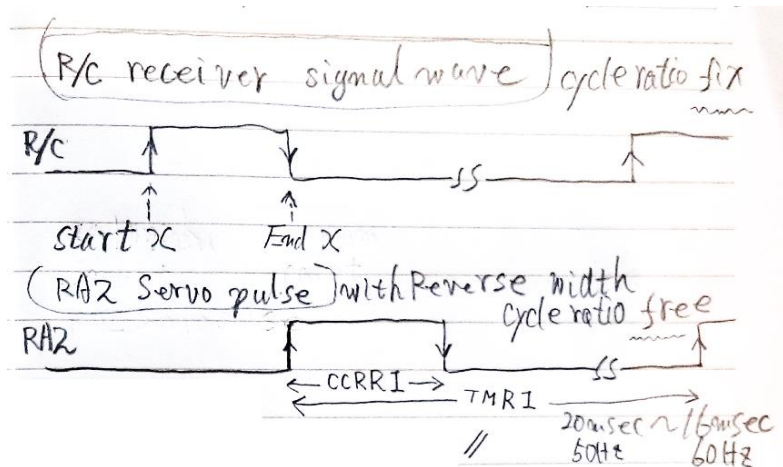 R/C receiver signal wave cycle ratio fix
R/C
SS
start x End x
RA2 Servo pulse with Reverse width
cycle ratio free
RA2
SS
CCRR1
TMR1
20msec ~ 16msec
50Hz 60Hz